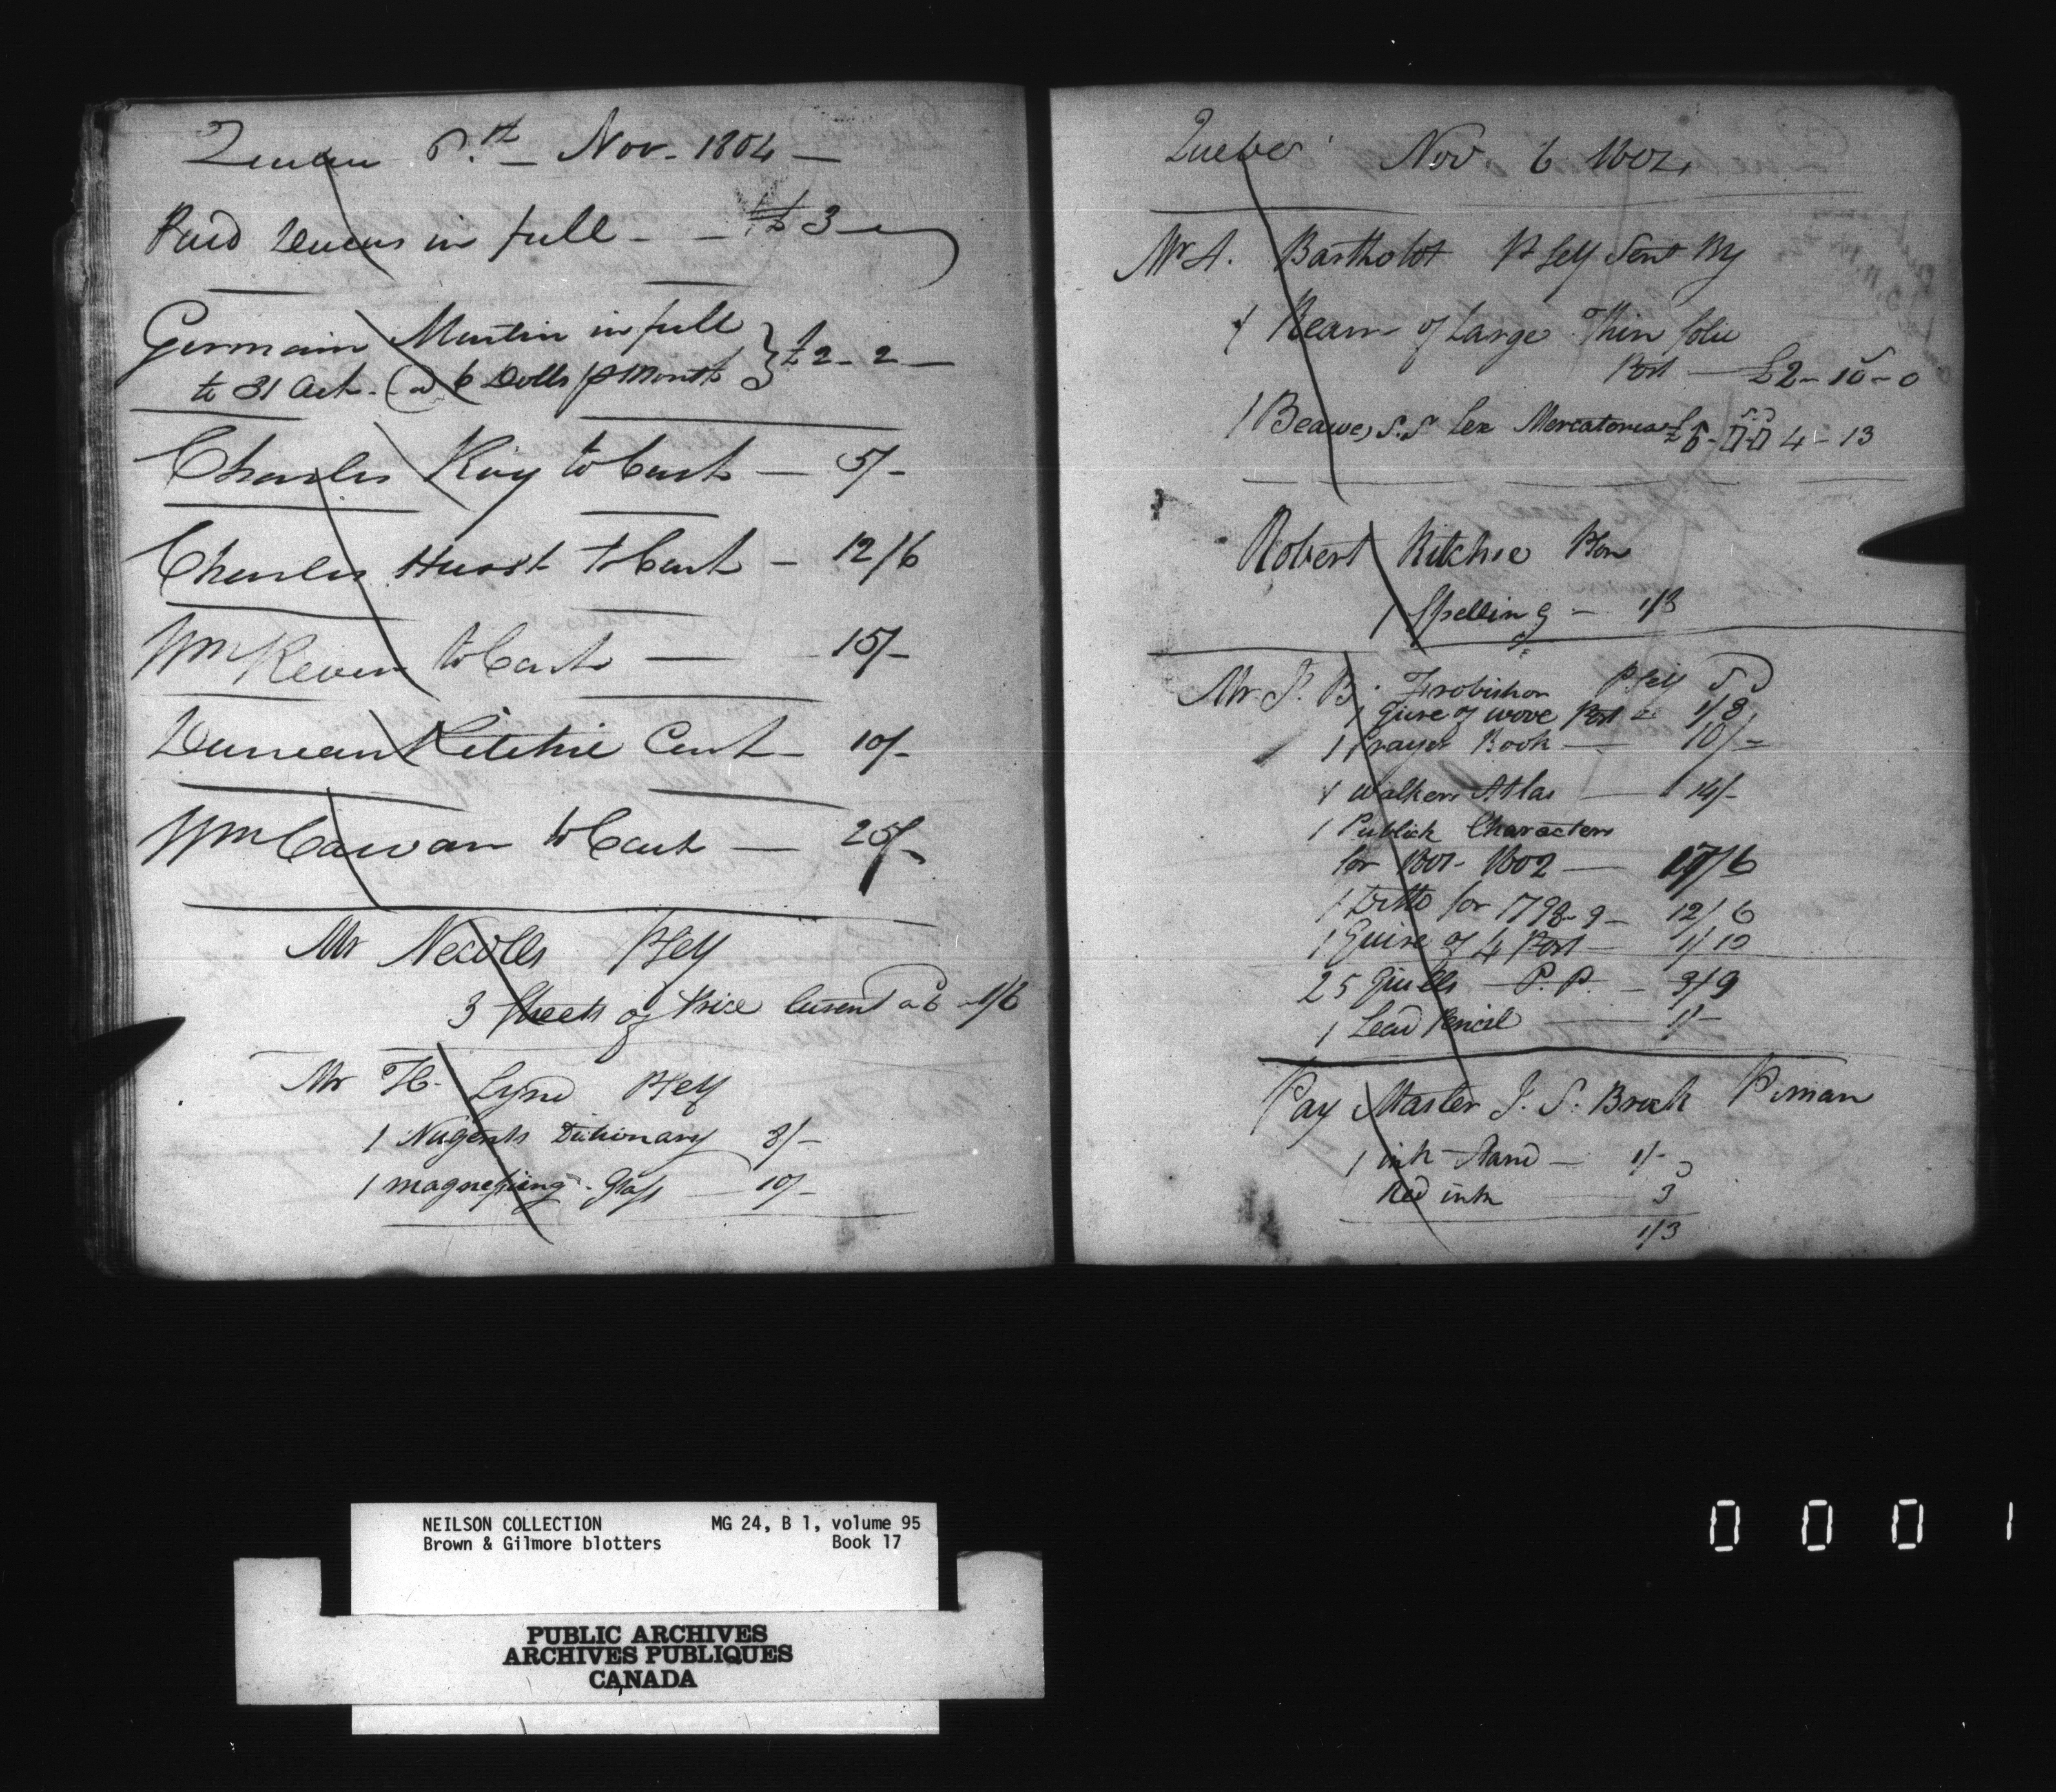 Quebec 6.th Nov. 1804
Paid Lucus in full - - £ 3
Germain Martin in full
to 31 Oct. @ 6 Dolls p Month } £2-2-
Charles Roy to Cash - 5/-
Charles Huot to Cash - 12/6
Wm Keven to Cash - 15/-
Duncan Ritchie Cash - 10/-
Wm Cowan to Cash - 25/-
Mr Necolls P Self
3 Sheets of Price Curent a 6 - 1/6
Mr H. Lynd P Self
1 Nugents Dictionary 8/-
1 magnefiing Glass - 10/-
Quebec Nov 6 1802,
Mr A. Bartholot P Self Sent By
1 Ream of Large Thin folio
Post - £2-10-0
1 Beawes, S.S Lex Mercatoria £ 4-13
Robert Ritchie P Son
1 Spelling - 1/3
Mr J. B. Frobisher P Self S D
1 Quire of wove Post - 1/8
1 Prayer Book - 10/-
1 Walkers Atlas - 14/-
1 Publick Characters
for 1801-1802 - 17/6
1 Ditto for 1798-9 - 12/6
1 Quire of 4 Post - 1/10
25 Quills P.P. - 3/9
1 Lead Pencil - 1/-
Pay Master J. S. Brock P. man
1 ink Stand - 1/-
Red ink 3
1/3
NEILSON COLLECTION MG 24, B 1, volume 95
Brown & Gilmore blotters Book 17
PUBLIC ARCHIVES
ARCHIVES PUBLIQUES
CANADA
0 0 0 1